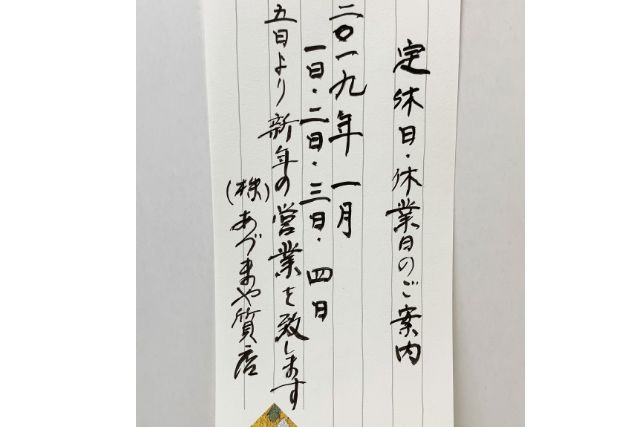 定休日・休業日のご案内
二〇一九年一月
一日・二日・三日・四日
五日より新年の営業を致します
(株)あづまや質店